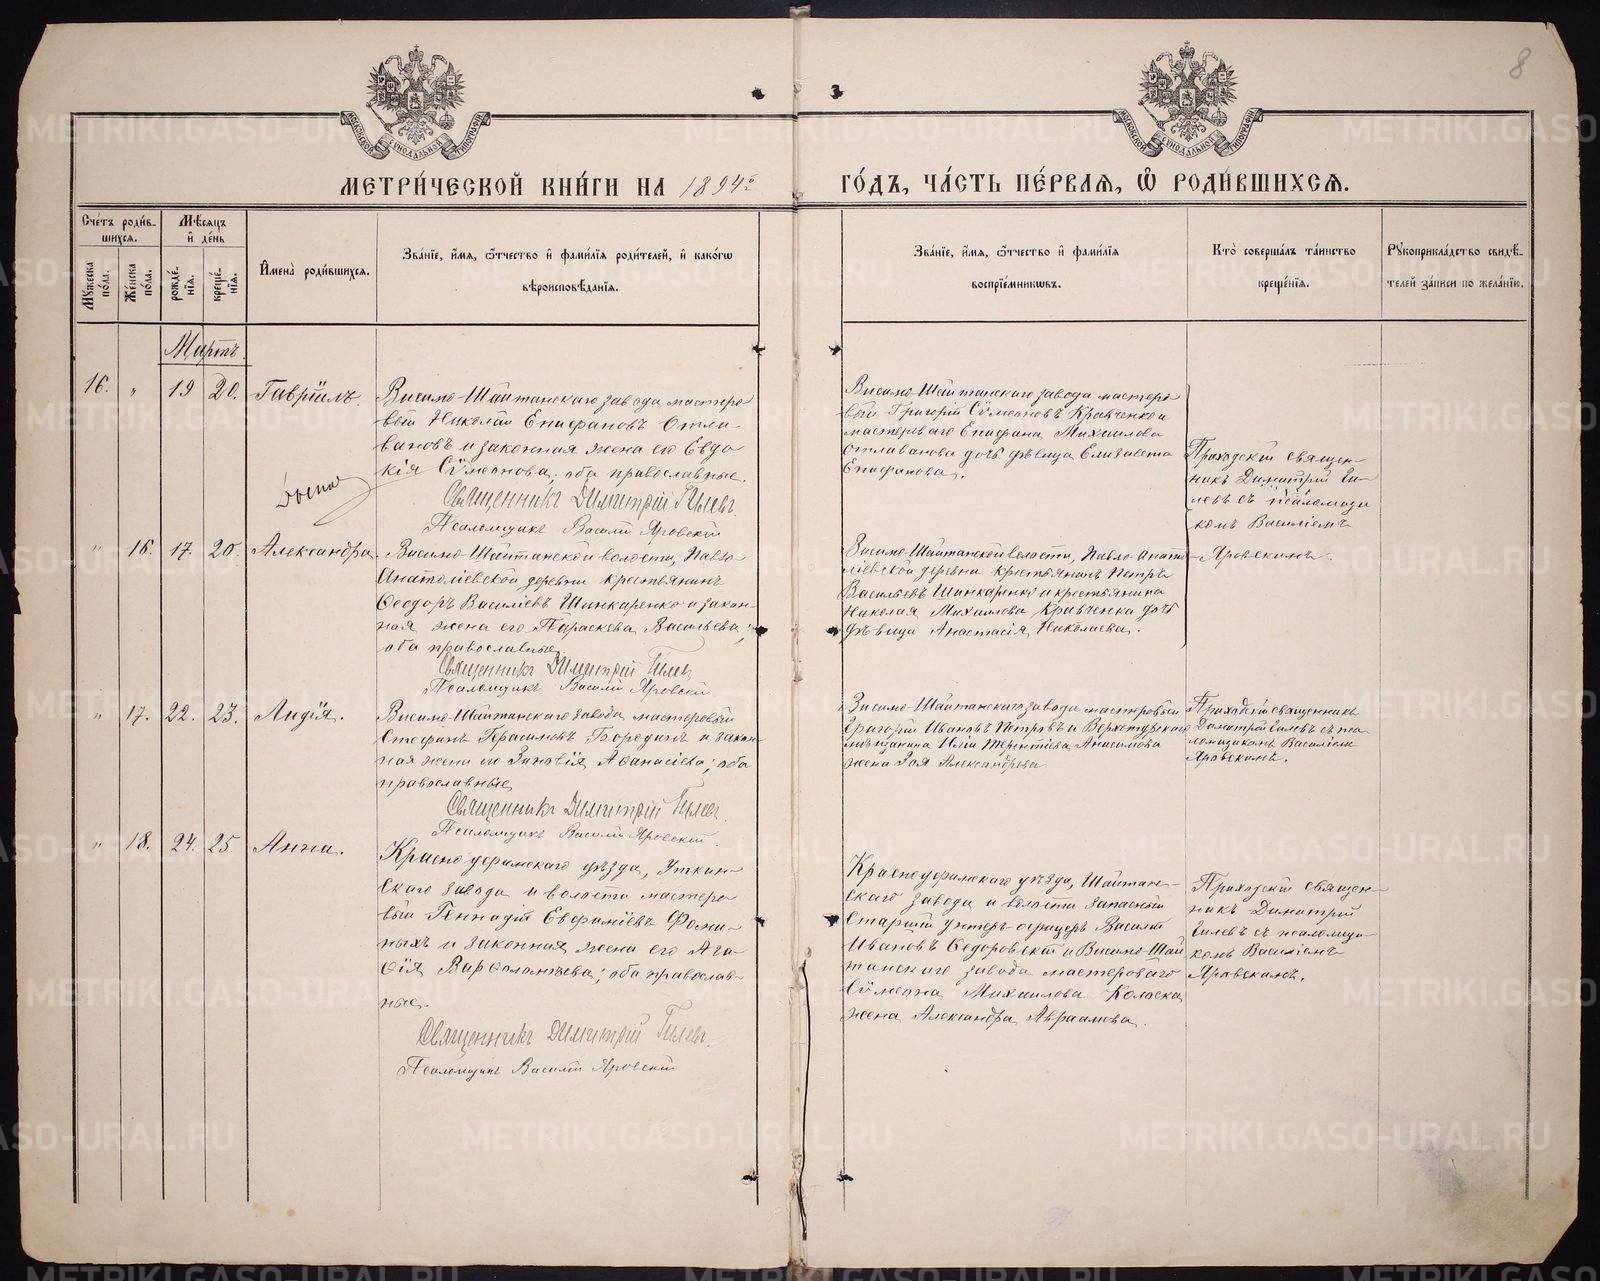 8
МОСКОВСКОЙ СѴНОДАЛЬНОЙ ТИПОГРАФІИ
МОСКОВСКОЙ СѴНОДАЛЬНОЙ ТИПОГРАФІИ
МЕТРИ́ЧЕСКОЙ КНИ́ГИ НА 1894й
ГО́ДЪ, ЧА́СТЬ ПЕ́РВАЯ, Ѿ РОДИ́ВШИХСЯ.
Сче́тъ роди́в-
шихся.
Мѣ́сяцъ
и҆ де́нь
Му́жеска по́ла.
Же́нска по́ла.
рожде́-
нія.
креще́-
нія.
И҆мена̀ роди́вшихся.
Зва́ніе, и҆́мя, ѻ҆́тчество и҆ фами́лія роди́телей, и҆ како́гѡ
вѣроисповѣ́данія.
Зва́ніе, и҆́мя, ѻ҆́тчество и҆ фами́лія
воспріе́мникѡвъ.
Кто̀ соверша́лъ та́инство
креще́нія.
Рукоприкла́дство свидѣ́-
телей за́писи по жела́нію.
Мартъ.
16. „ 19 20. Гавріилъ
Висимо-Шайтанскаго завода мастеро-
вый Николай Епифановъ Отли-
вановъ и законная жена его Евдо-
кія Сѵмеонова; оба православные.
Священникъ Димитрій Гилевъ.
Псаломщикъ Василій Яровскій
Висимо-Шайтанскаго завода мастеро-
вый Григорій Сѵмеоновъ Кравченко и
мастероваго Епифана Михаилова
Отливанова дочь дѣвица Елизавета
Епифанова.
Приходскій священ-
никъ Димитрій Ги-
левъ съ псаломщи-
комъ Василіемъ
Яровскимъ.
„ 16. 17. 20. Александра
Висимо-Шайтанской волости, Павло-
Анатоліевской деревни крестьянинъ
Ѳеодоръ Василіевъ Шинкаренко и закон-
ная жена его Параскева Васильева;
оба православные
Священникъ Димитрій Гилевъ
Псаломщикъ Василій Яровскій
Висимо-Шайтанской волости, Павло-Анато-
ліевской деревни крестьянинъ Петръ
Васильевъ Шинкаренко и крестьянина
Николая Михаилова Кравченка дочь
дѣвица Анастасія Николаева.
„ 17. 22. 23. Лидія.
Висимо-Шайтанскаго завода мастеровый
Стефанъ Герасимовъ Бородинъ и закон-
ная жена его Зиновія Аѳанасіева; оба
православные
Священникъ Димитрій Гилевъ.
Псаломщикъ Василій Яровскій
Висимо-Шайтанскаго завода мастеровый
Григорій Ивановъ Петровъ и Верхотурскаго
мѣщанина Иліи Терентіева Анисимова
жена Зоя Александрова
Приходскій священникъ
Димитрій Гилевъ съ пса-
ломщикомъ Василіемъ
Яровскимъ.
„ 18. 24. 25 Анна.
Красноуфимскаго уѣзда, Уткин-
скаго завода и волости мастеро-
вый Геннадій Евфиміевъ Ѳоми-
ныхъ и законная жена его Ага-
ѳія Варѳоломѣева; оба православ-
ные.
Священникъ Димитрій Гилевъ.
Псаломщикъ Василій Яровскій
Красноуфимскаго уѣзда, Шайтан-
скаго завода и волости запасный
старшій унтеръ-офицеръ Василій
Ивановъ Ѳедоровскій и Висимо-Шай-
танскаго завода мастероваго
Сѵмеона Михаилова
жена Александра Авраамова.
Приходскій священ-
никъ Димитрій
Гилевъ съ псаломщи-
комъ Василіемъ
Яровскимъ.